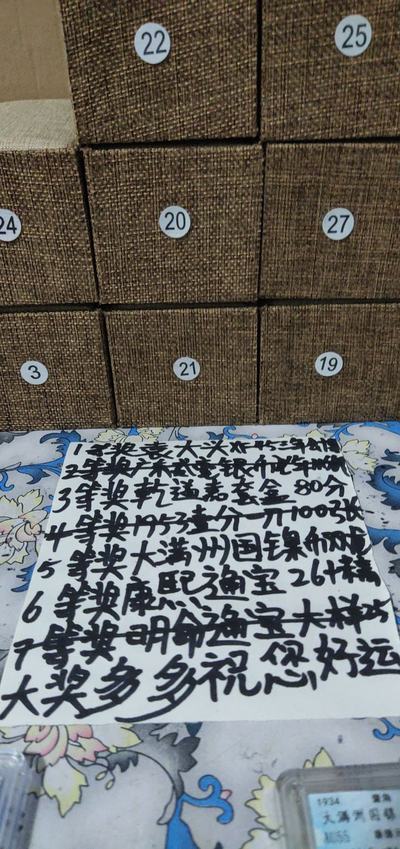 22
25
24
20
27
3
21
19
1等奖袁大头
2等奖广东
3等奖乾隆嘉套金80分
4等奖1953壹分一刀100张
5等奖大满州国镍币
6等奖康熙通宝26
7等奖明命通宝大样25
大奖多多祝您好运
1934
大满洲国镍
AU55